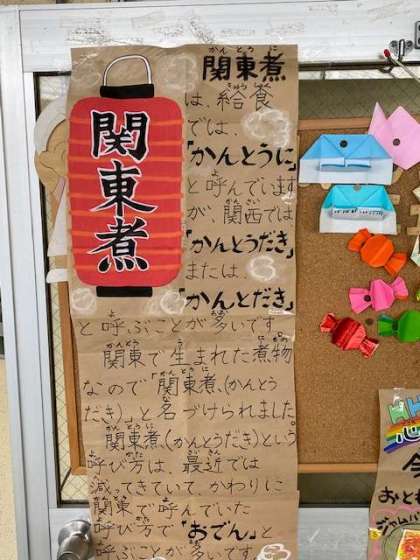 関東煮
かんとうに
関東煮
は、給食
きゅうしょく
では、
「かんとうに」
と呼んでいます
よ
が、関西では
かんさい
「かんとうだき」
または、
「かんとだき」
と呼ぶことが多いです。
よ
関東で生まれた煮物
かんとう
なので「関東煮(かんとう
だき)」と名づけられました。
関東煮(かんとうだき)という
呼び方は、最近では
減ってきていて、かわりに
関東で呼んでいた
呼び方で「おでん」と
呼ぶことが多いです。